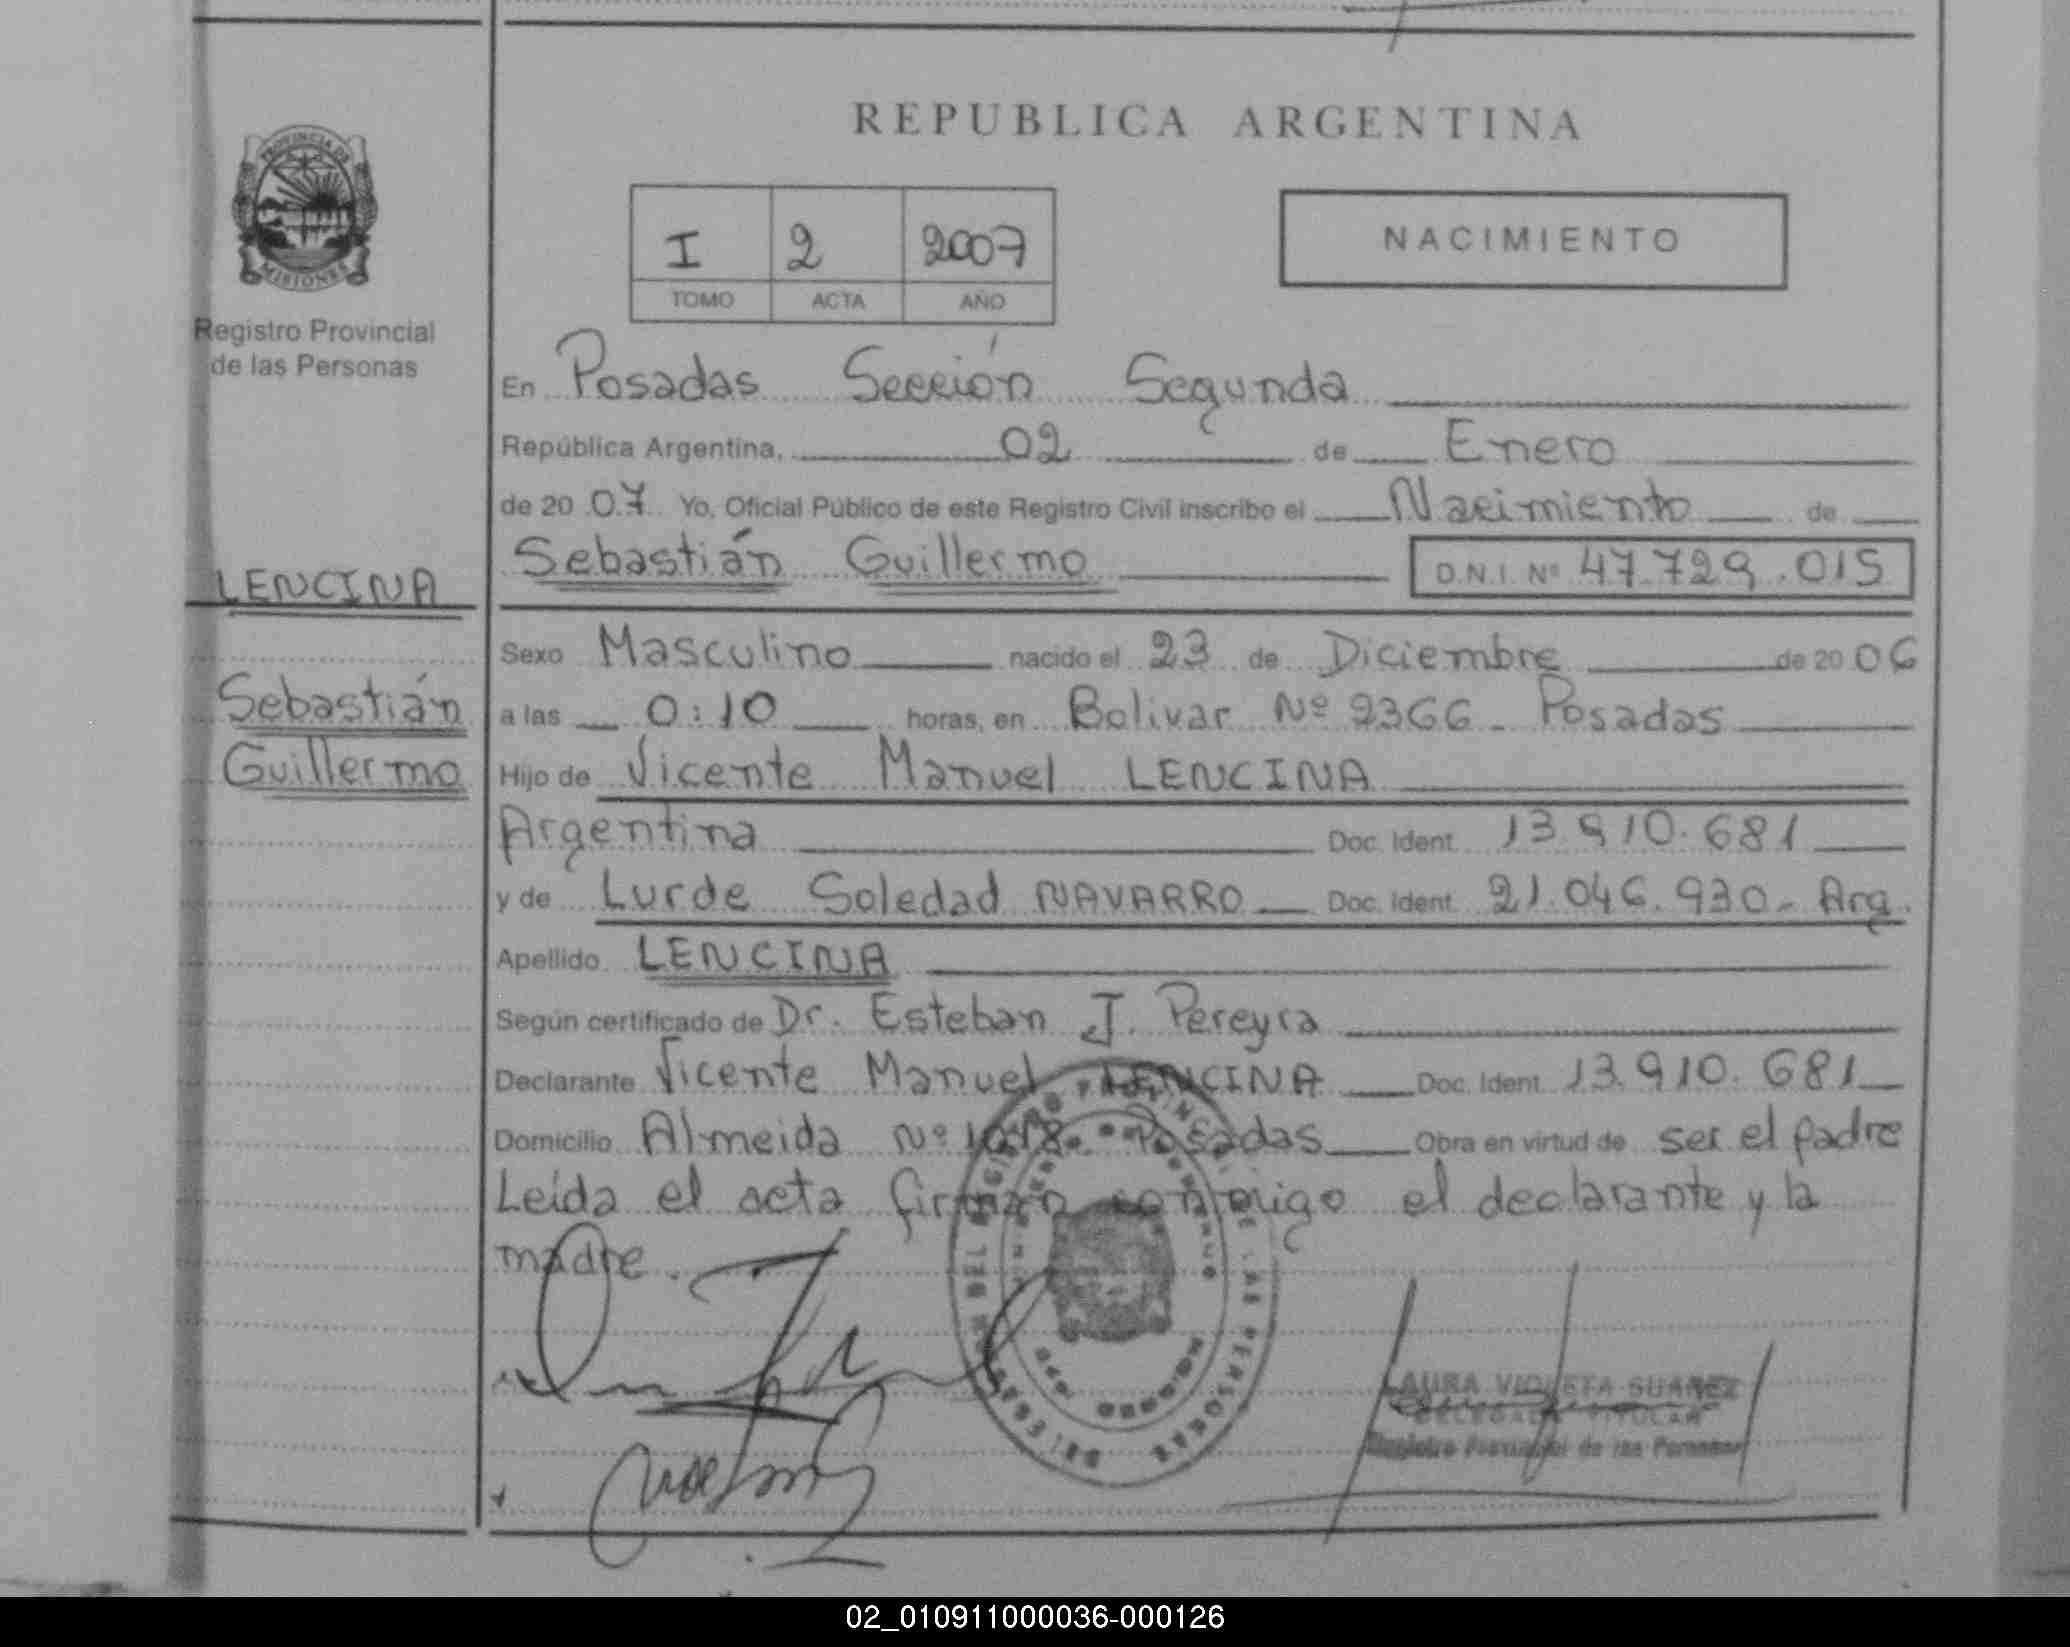 REPUBLICA ARGENTINA
PROVINCIA DE
MISIONES
Registro Provincial
de las Personas
I 2 2007
TOMO ACTA AÑO
NACIMIENTO
En Posadas Sección Segunda
República Argentina, 02 de Enero
de 20 07 Yo, Oficial Público de este Registro Civil inscribo el Nacimiento de
Sebastián Guillermo D.N.I. Nº 47.729.015
LENCINA
Sebastián
Guillermo
Sexo Masculino nacido el 23 de Diciembre de 20 06
a las 0:10 horas, en Bolivar Nº 2366 - Posadas
Hijo de Vicente Manuel LENCINA
Argentina Doc. Ident. 13.910.681
y de Lurde Soledad NAVARRO Doc. Ident. 21.046.930 - Arg.
Apellido LENCINA
Según certificado de Dr. Esteban J. Pereyra
Declarante Vicente Manuel LENCINA Doc. Ident. 13.910.681
Domicilio Almeida Nº Posadas Obra en virtud de ser el padre
Leída el acta firman conmigo el declarante y la
madre.
LAURA VIOLETA SUAREZ
DELEGADA TITULAR
Registro Provincial de las Personas
02_010911000036-000126